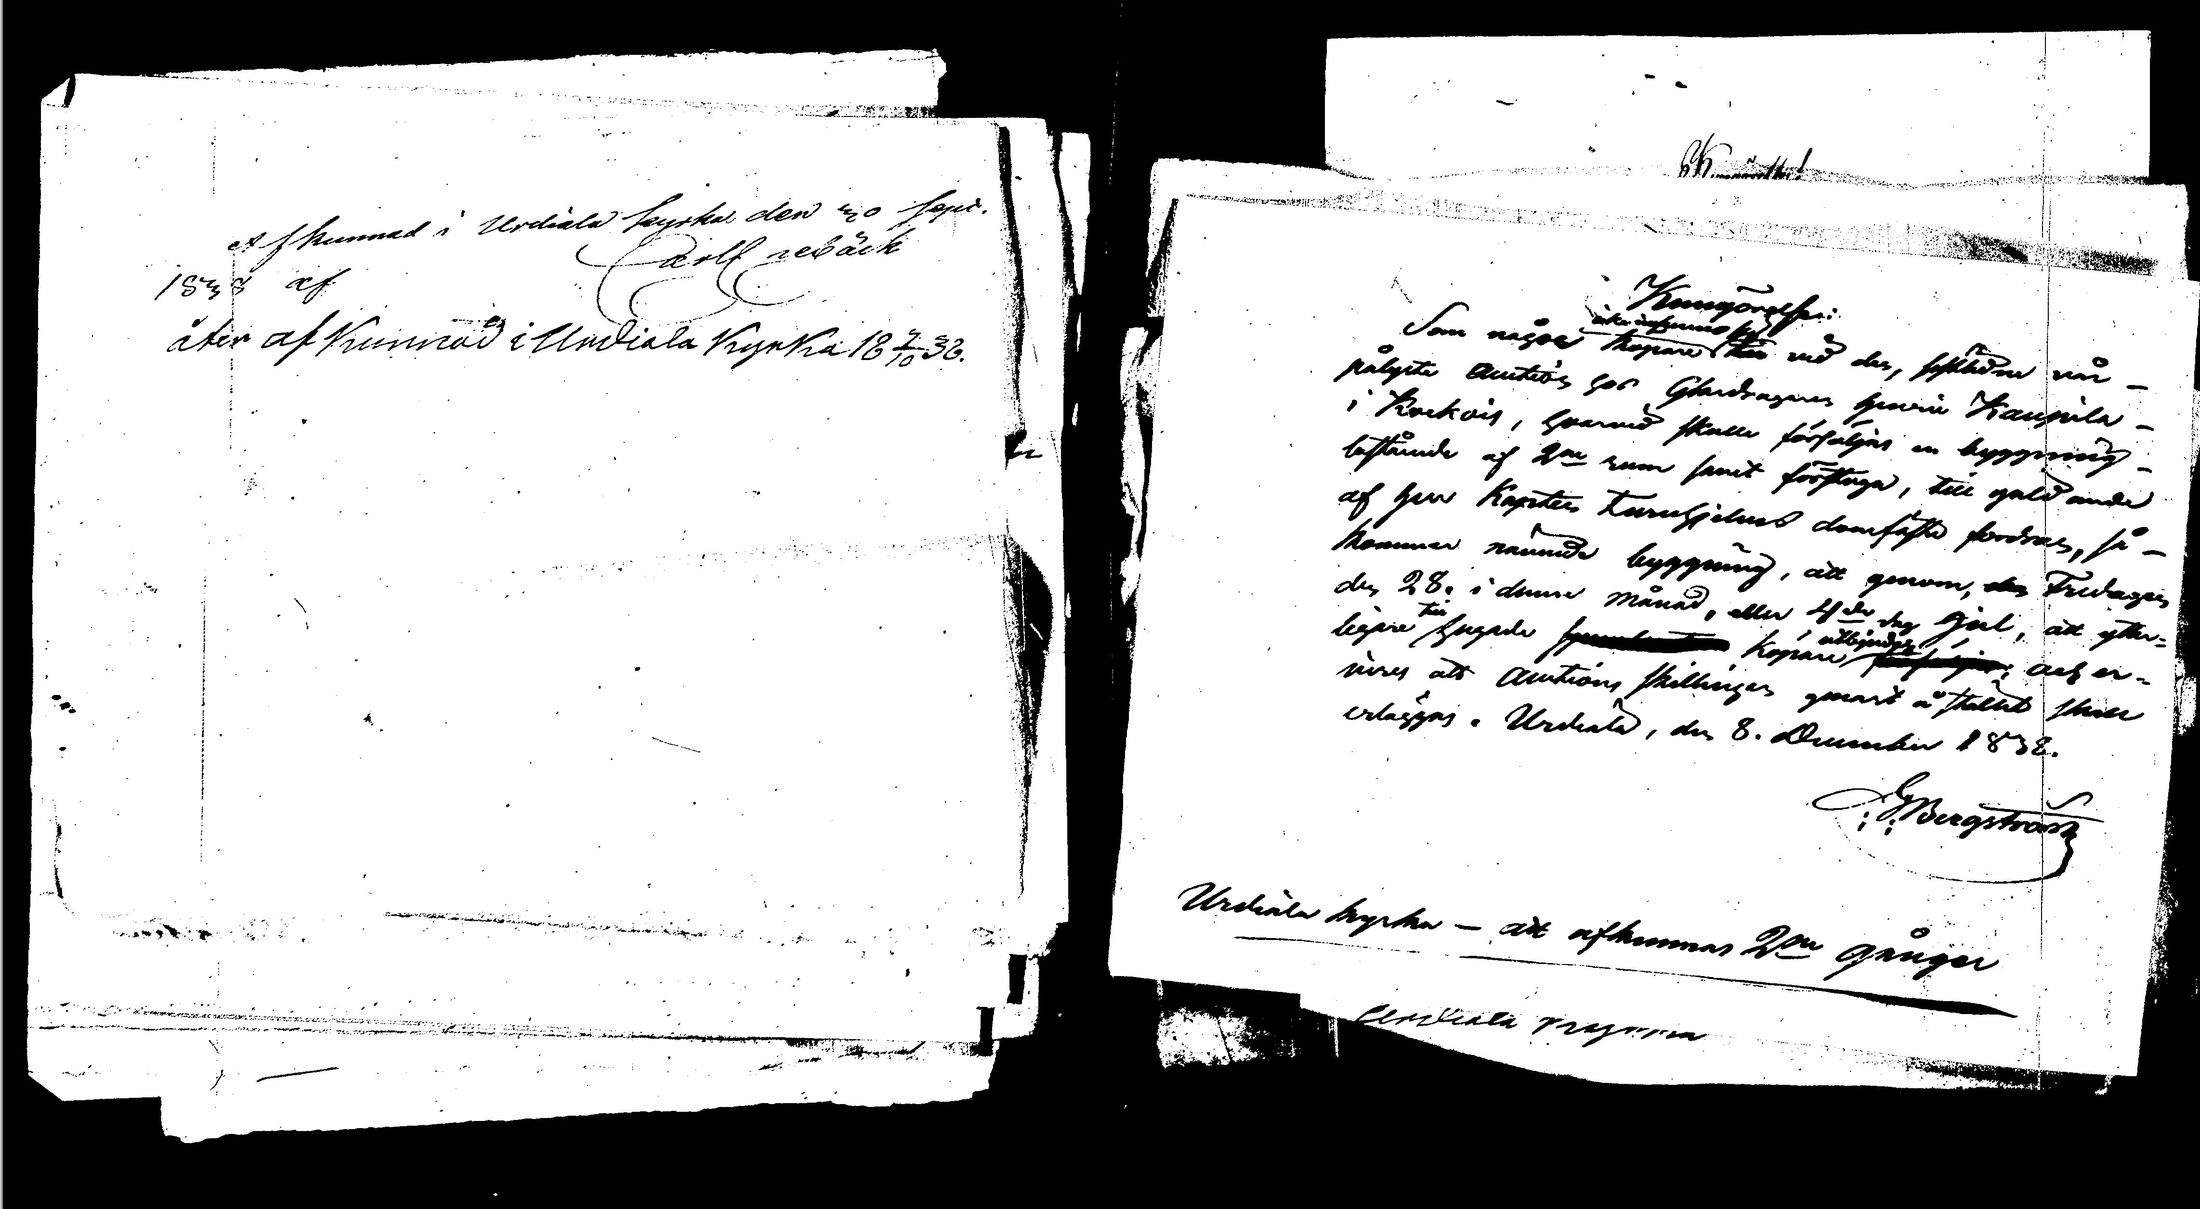 Afkunnad i Urdiala kyrka den 30 Sept.
1838 af Carl Frebäck
åter afkunnad i Urdiala Kyrka 18 7/10 38.
Kungörelse:
Som någon köpare icke infunno sig vid den, sistledne vår
pålyste Auction hos Glasdragaren Henric Kaupila
i Kockois, hvarvid skulle försäljas en byggning
bestående af 2ne rum samt förstuga, till guldande
af Herr Kapiten Turnhjelms domfäste fordran, så
kommer nämnde byggning, att genom, den Fredagen
den 28. i denne Månad, eller 4de dag Jul, att ytter-
ligare till hugade Köpare utbjudas; och er-
inres att Auctions skillingen genast å stället skall
erläggas. Urdiala, den 8. December 1838.
G Bergström
Urdiala kyrka – att afkunnas 2ne gånger
Urdiala